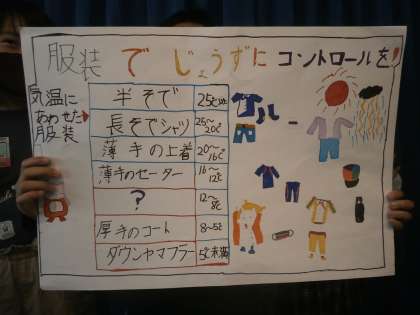 服装でじょうずにコントロールを!
気温に
あわせた
服装
半そで 25℃以上
長そでシャツ 25~20℃
薄手の上着 20~16℃
薄手のセーター 16~12℃
? 12~8℃
厚手のコート 8~5℃
ダウンやマフラー 5℃未満
ル